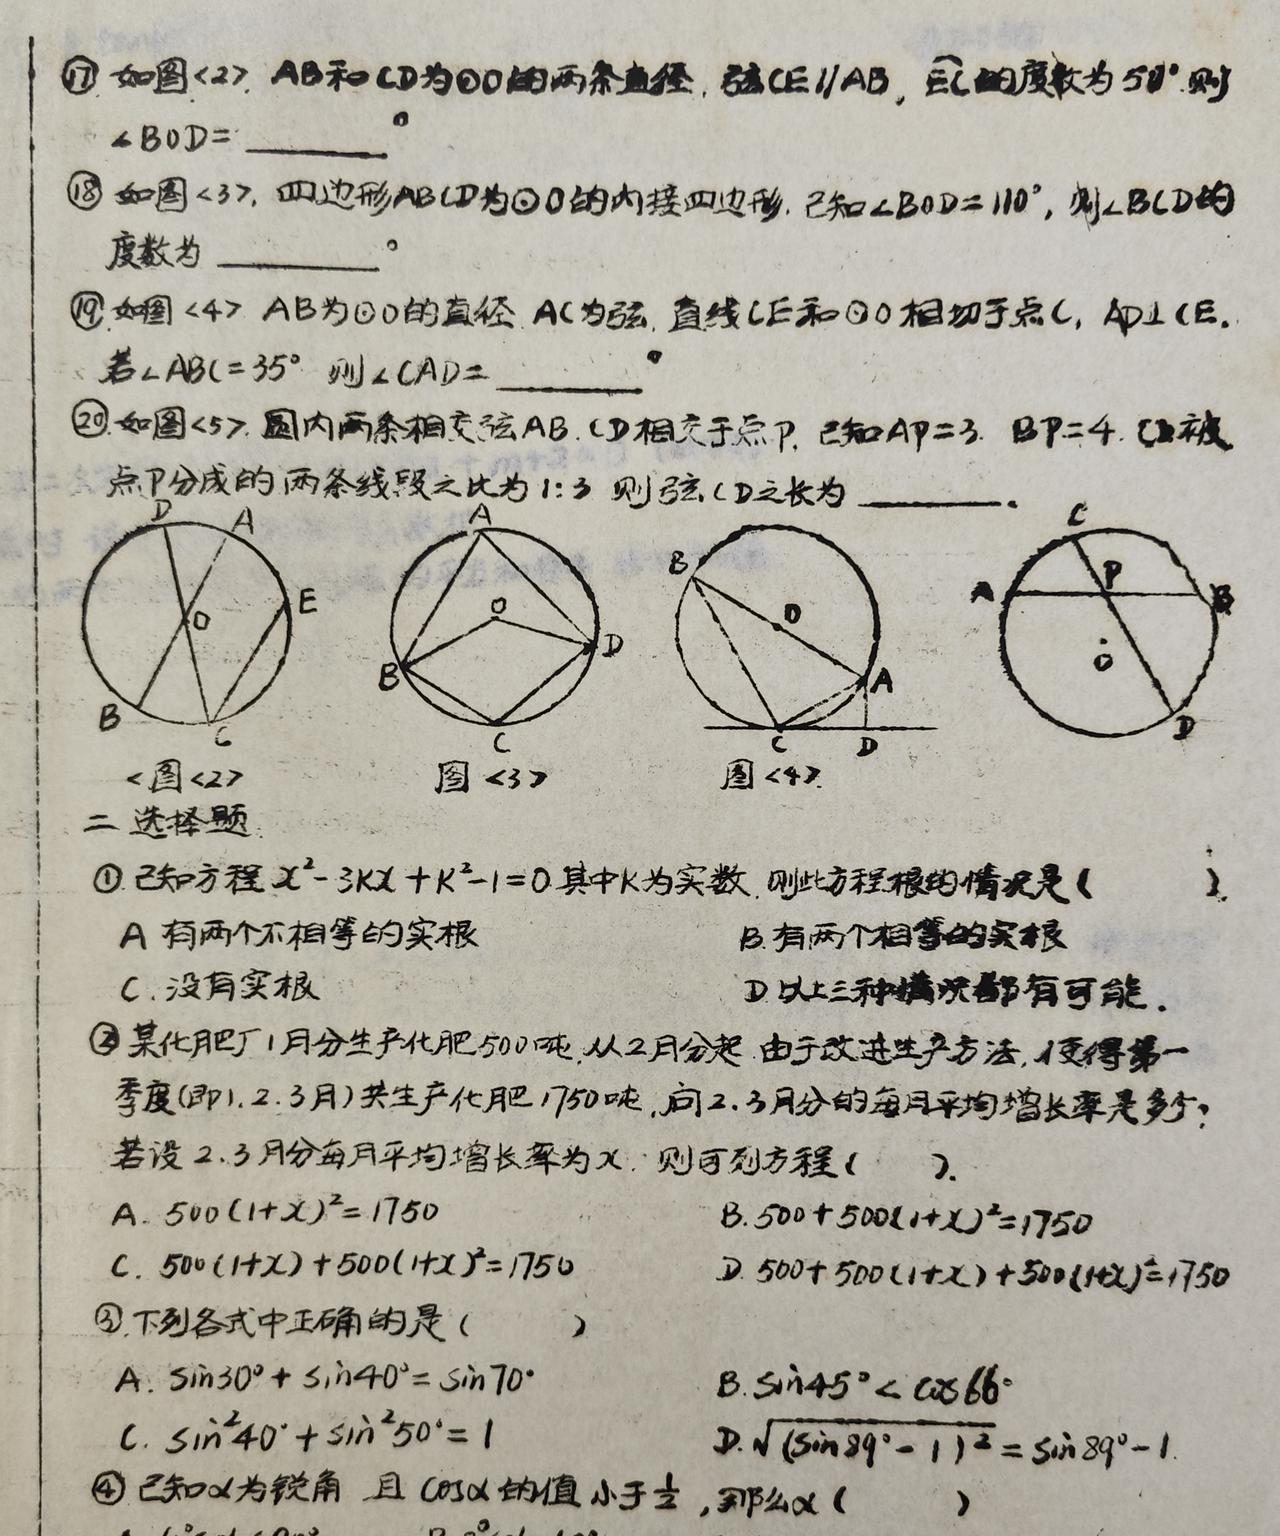 ⑰ 如图<2>. AB和CD为⊙O的两条直径, 弦CE//AB, EC的度数为50°.则
∠BOD= ______°
⑱ 如图<3>, 四边形ABCD为⊙O的内接四边形. 己知∠BOD=110°, 则∠BCD的
度数为 ______°
⑲ 如图<4> AB为⊙O的直径 AC为弦, 直线CE和⊙O相切于点C, AD⊥CE.
若∠ABC=35° 则∠CAD= ______°
⑳ 如图<5>. 圆内两条相交弦AB.CD相交于点P. 己知AP=3. BP=4. CD被
点P分成的两条线段之比为1:3 则弦CD之长为 ______.
D A E O B C
A O B D C
B O A C D
C A P B O D
<图<2>
图<3>
图<4>.
二 选择题
① 己知方程x²-3kx+k²-1=0.其中k为实数.则此方程根的情况是( ).
A 有两个不相等的实根
B.有两个相等的实根
C.没有实根
D以上三种情况都有可能.
② 某化肥厂1月分生产化肥500吨,从2月分起.由于改进生产方法,使得第一
季度(即1.2.3月)共生产化肥1750吨,问2.3月分的每月平均增长率是多少?
若设2.3月分每月平均增长率为x. 则可列方程( ).
A. 500(1+x)²=1750
B.500+500(1+x)²=1750
C. 500(1+x)+500(1+x)²=1750
D.500+500(1+x)+500(1+x)²=1750
③.下列各式中正确的是( )
A. sin30°+sin40°=sin70°
B.sin45°<cos66°
C. sin²40°+sin²50°=1
D.√(sin89°-1)²=sin89°-1.
④ 己知α为锐角 且cosα的值小于½,那么α( )